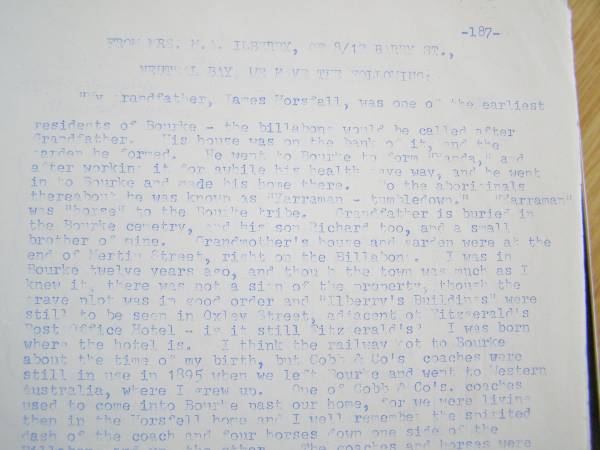 -187-
FROM MRS. M.A. ILBERRY, OF 8/17 BARRY ST.,
NEUTRAL BAY, WE HAVE THE FOLLOWING:
"My grandfather, James Horsfall, was one of the earliest
residents of Bourke - the billabong would be called after
Grandfather. His house was on the bank of it, and the
garden he formed. He went to Bourke to form "Wanda," and
after working it for awhile his health gave way, and he went
in to Bourke and made his home there. To the aboriginals
thereabout he was known as "Yarraman - tumbledown." "Yarraman"
was "horse" to the Bourke tribe. Grandfather is buried in
the Bourke cemetry, and his son Richard too, and a small
brother of mine. Grandmother's house and garden were at the
end of Mertin Street, right on the Billabong. I was in
Bourke twelve years ago, and though the town was much as I
knew it, there was not a sign of the property, though the
grave plot was in good order and "Ilberry's Buildings" were
still to be seen in Oxley Street, adjacent of Fitzgerald's
Post Office Hotel - is it still Fitzgerald's? I was born
where the hotel is. I think the railway got to Bourke
about the time of my birth, but Cobb & Co's coaches were
still in use in 1895 when we left Bourke and went to Western
Australia, where I grew up. One of Cobb & Co's. coaches
used to come into Bourke past our home, for we were living
then in the Horsfall home and I well remember the spirited
dash of the coach and four horses down one side of the
Billabong and up the other. The coaches and horses were